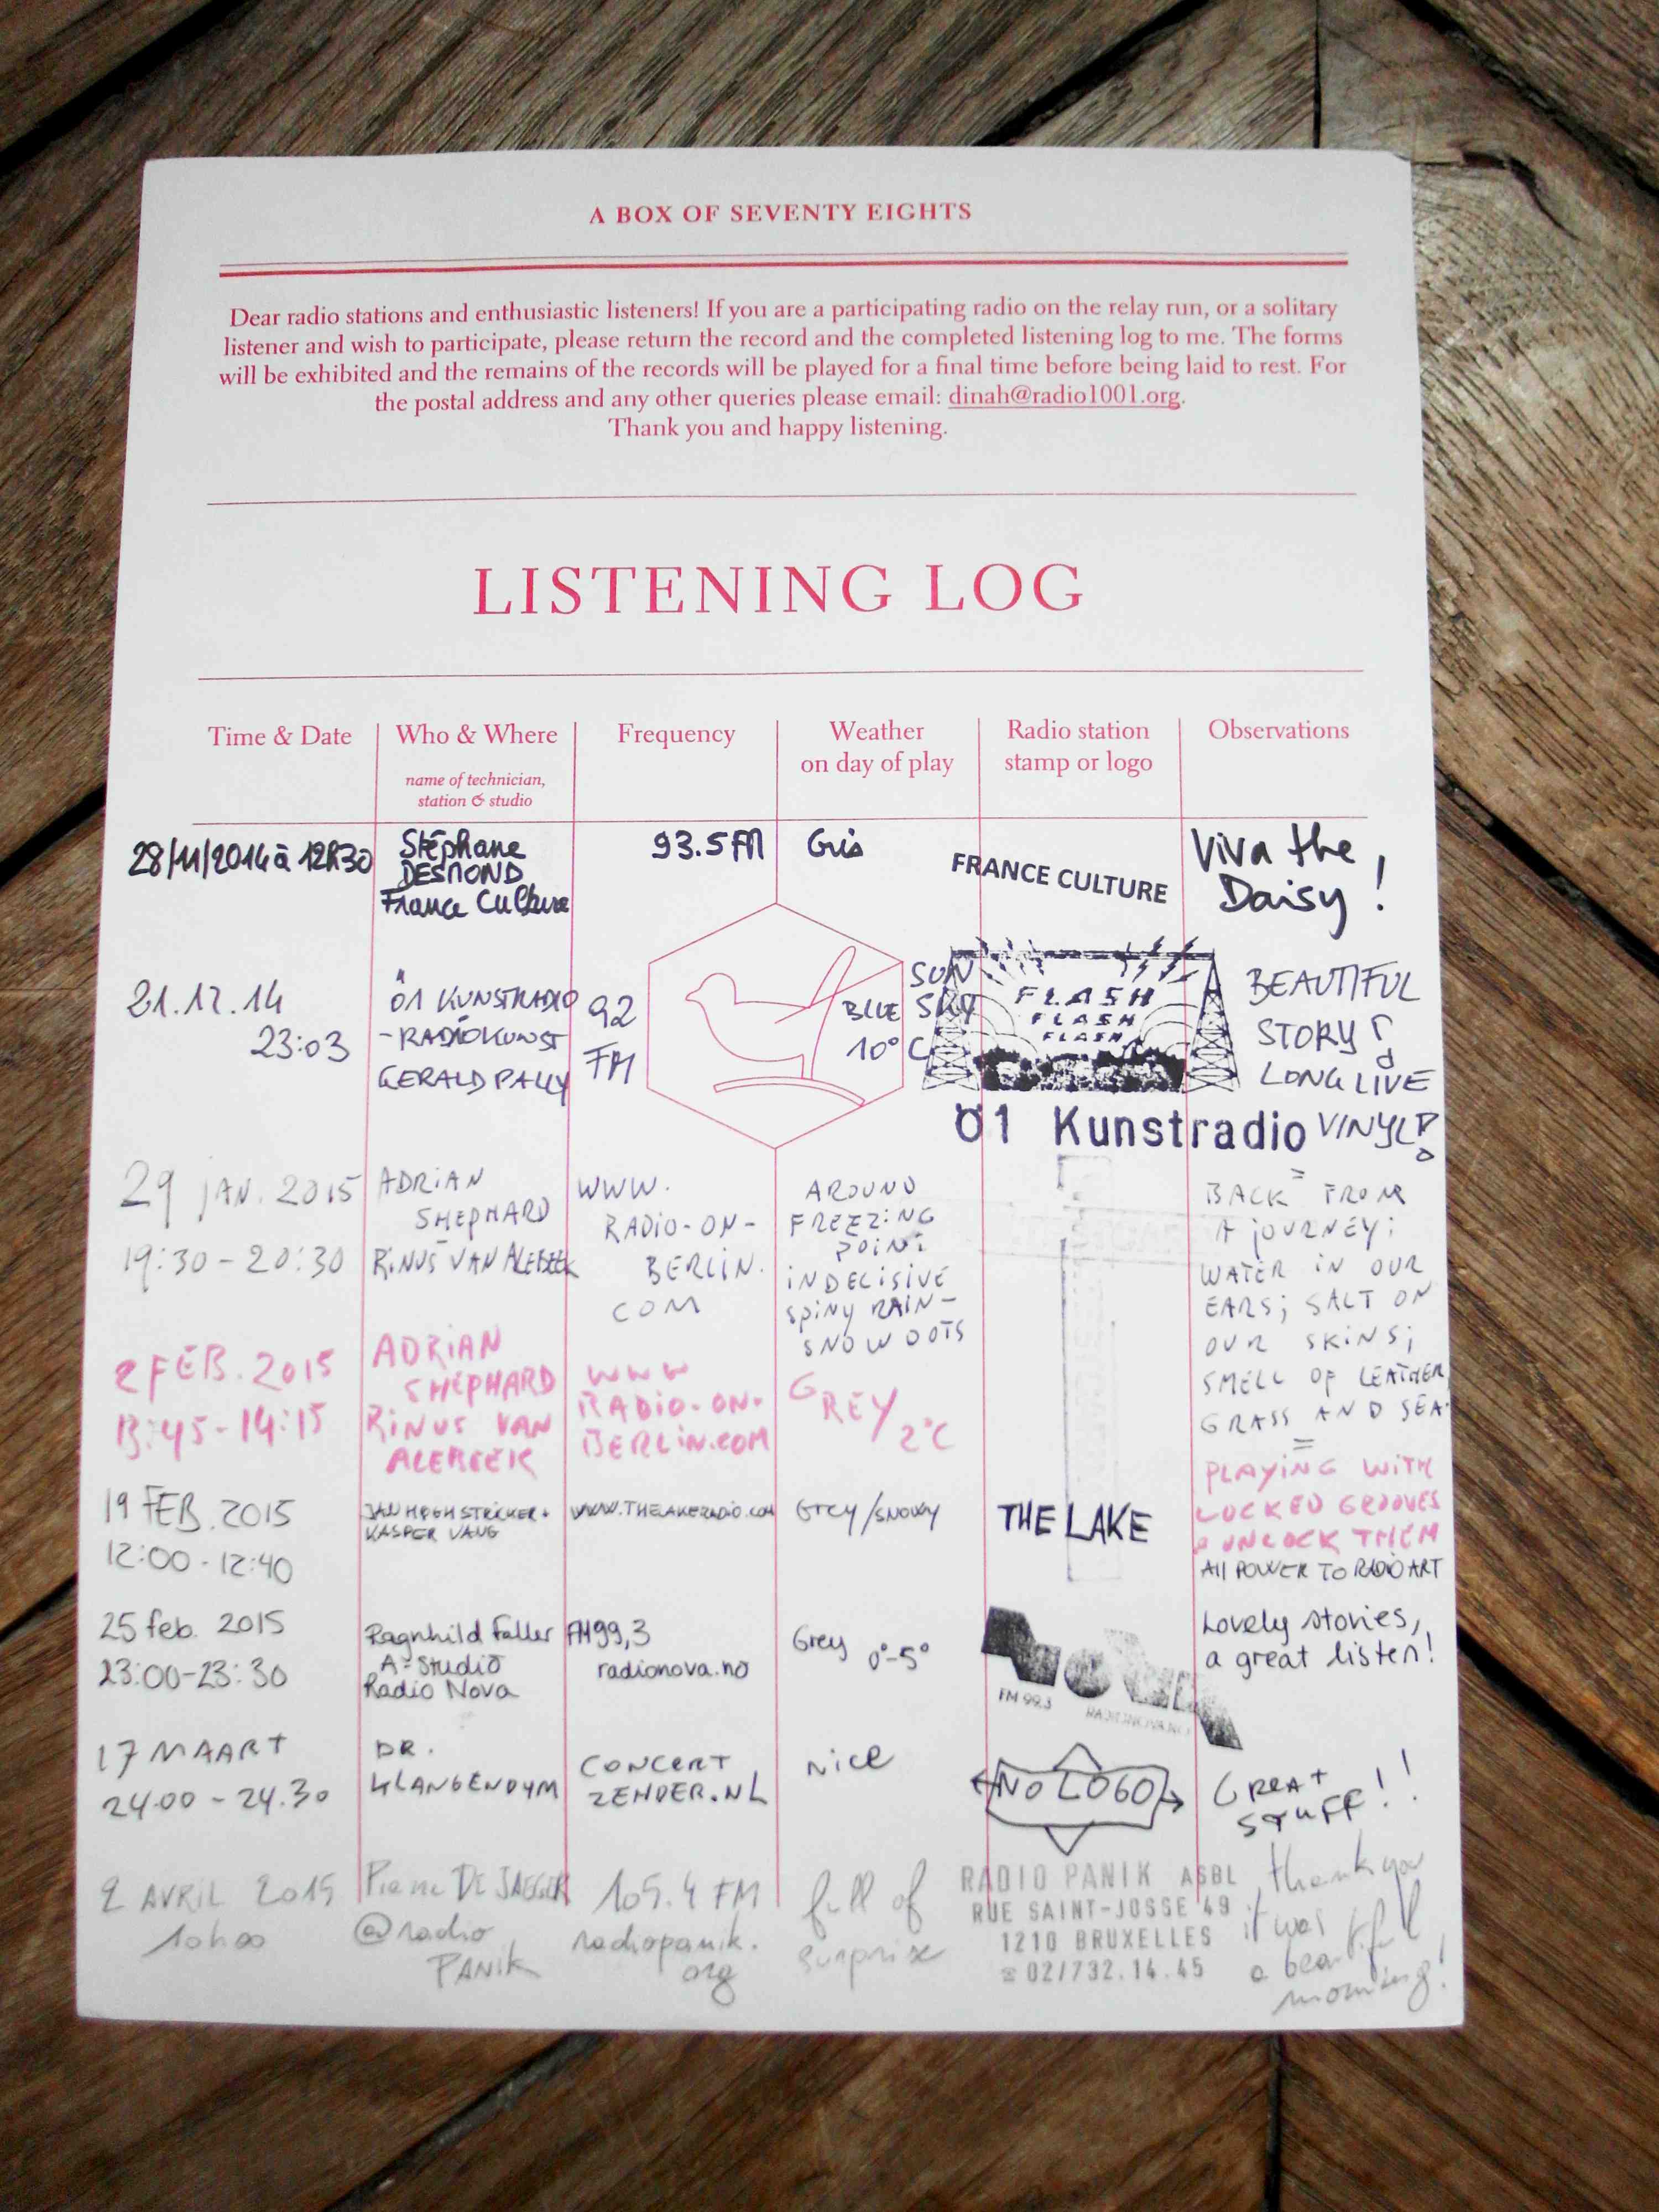 A BOX OF SEVENTY EIGHTS
Dear radio stations and enthusiastic listeners! If you are a participating radio on the relay run, or a solitary
listener and wish to participate, please return the record and the completed listening log to me. The forms
will be exhibited and the remains of the records will be played for a final time before being laid to rest. For
the postal address and any other queries please email: dinah@radio1001.org.
Thank you and happy listening.
LISTENING LOG
Time & Date
Who & Where
name of technician,
station & studio
Frequency
Weather
on day of play
Radio station
stamp or logo
Observations
28/11/2014 à 12h30
Stéphane
DESMOND
France Culture
93.5 FM
Gris
FRANCE CULTURE
Viva the
Daisy!
21.12.14
23:03
Ö1 KUNSTRADIO
-RADIOKUNST
GERALD PALLY
92
FM
SUN
BLUE SKY
10°C
FLASH
FLASH
FLASH
Ö1 Kunstradio
BEAUTIFUL
STORY!
LONG LIVE
VINYL!
29 JAN. 2015
19:30-20:30
ADRIAN
SHEPHARD
RINUS VAN ALEBEEK
WWW.
RADIO-ON-
BERLIN.
COM
AROUND
FREEZING
POINT
INDECISIVE
SPINY RAIN-
SNOW DOTS
BACK FROM
A JOURNEY;
WATER IN OUR
EARS; SALT ON
OUR SKINS;
SMELL OF LEATHER,
GRASS AND SEA.
2 FEB. 2015
13:45-14:15
ADRIAN
SHEPHARD
RINUS VAN
ALEBEEK
WWW
RADIO-ON-
BERLIN.COM
GREY/2°C
PLAYING WITH
LOCKED GROOVES
& UNLOCK THEM
19 FEB. 2015
12:00-12:40
JAN HØGH STRICKER +
KASPER VANG
WWW.THELAKERADIO.COM
Grey/snowy
THE LAKE
All POWER TO RADIO ART
25 feb. 2015
23:00-23:30
Ragnhild Faller
A-Studio
Radio Nova
FM 99,3
radionova.no
Grey 0°-5°
NOVA
FM 99.3
RADIONOVA.NO
Lovely stories,
a great listen!
17 MAART
24.00 - 24.30
DR.
KLANGENDUM
CONCERT
ZENDER.NL
Nice
NO LOGO
GREAT
STUFF!!
2 AVRIL 2015
10h00
Pierre DE JAEGER
@radio
PANIK
105.4 FM
radiopanik.
org
full of
surprise
RADIO PANIK ASBL
RUE SAINT-JOSSE 49
1210 BRUXELLES
☎ 02/732.14.45
thank you
it was
a beautiful
morning!